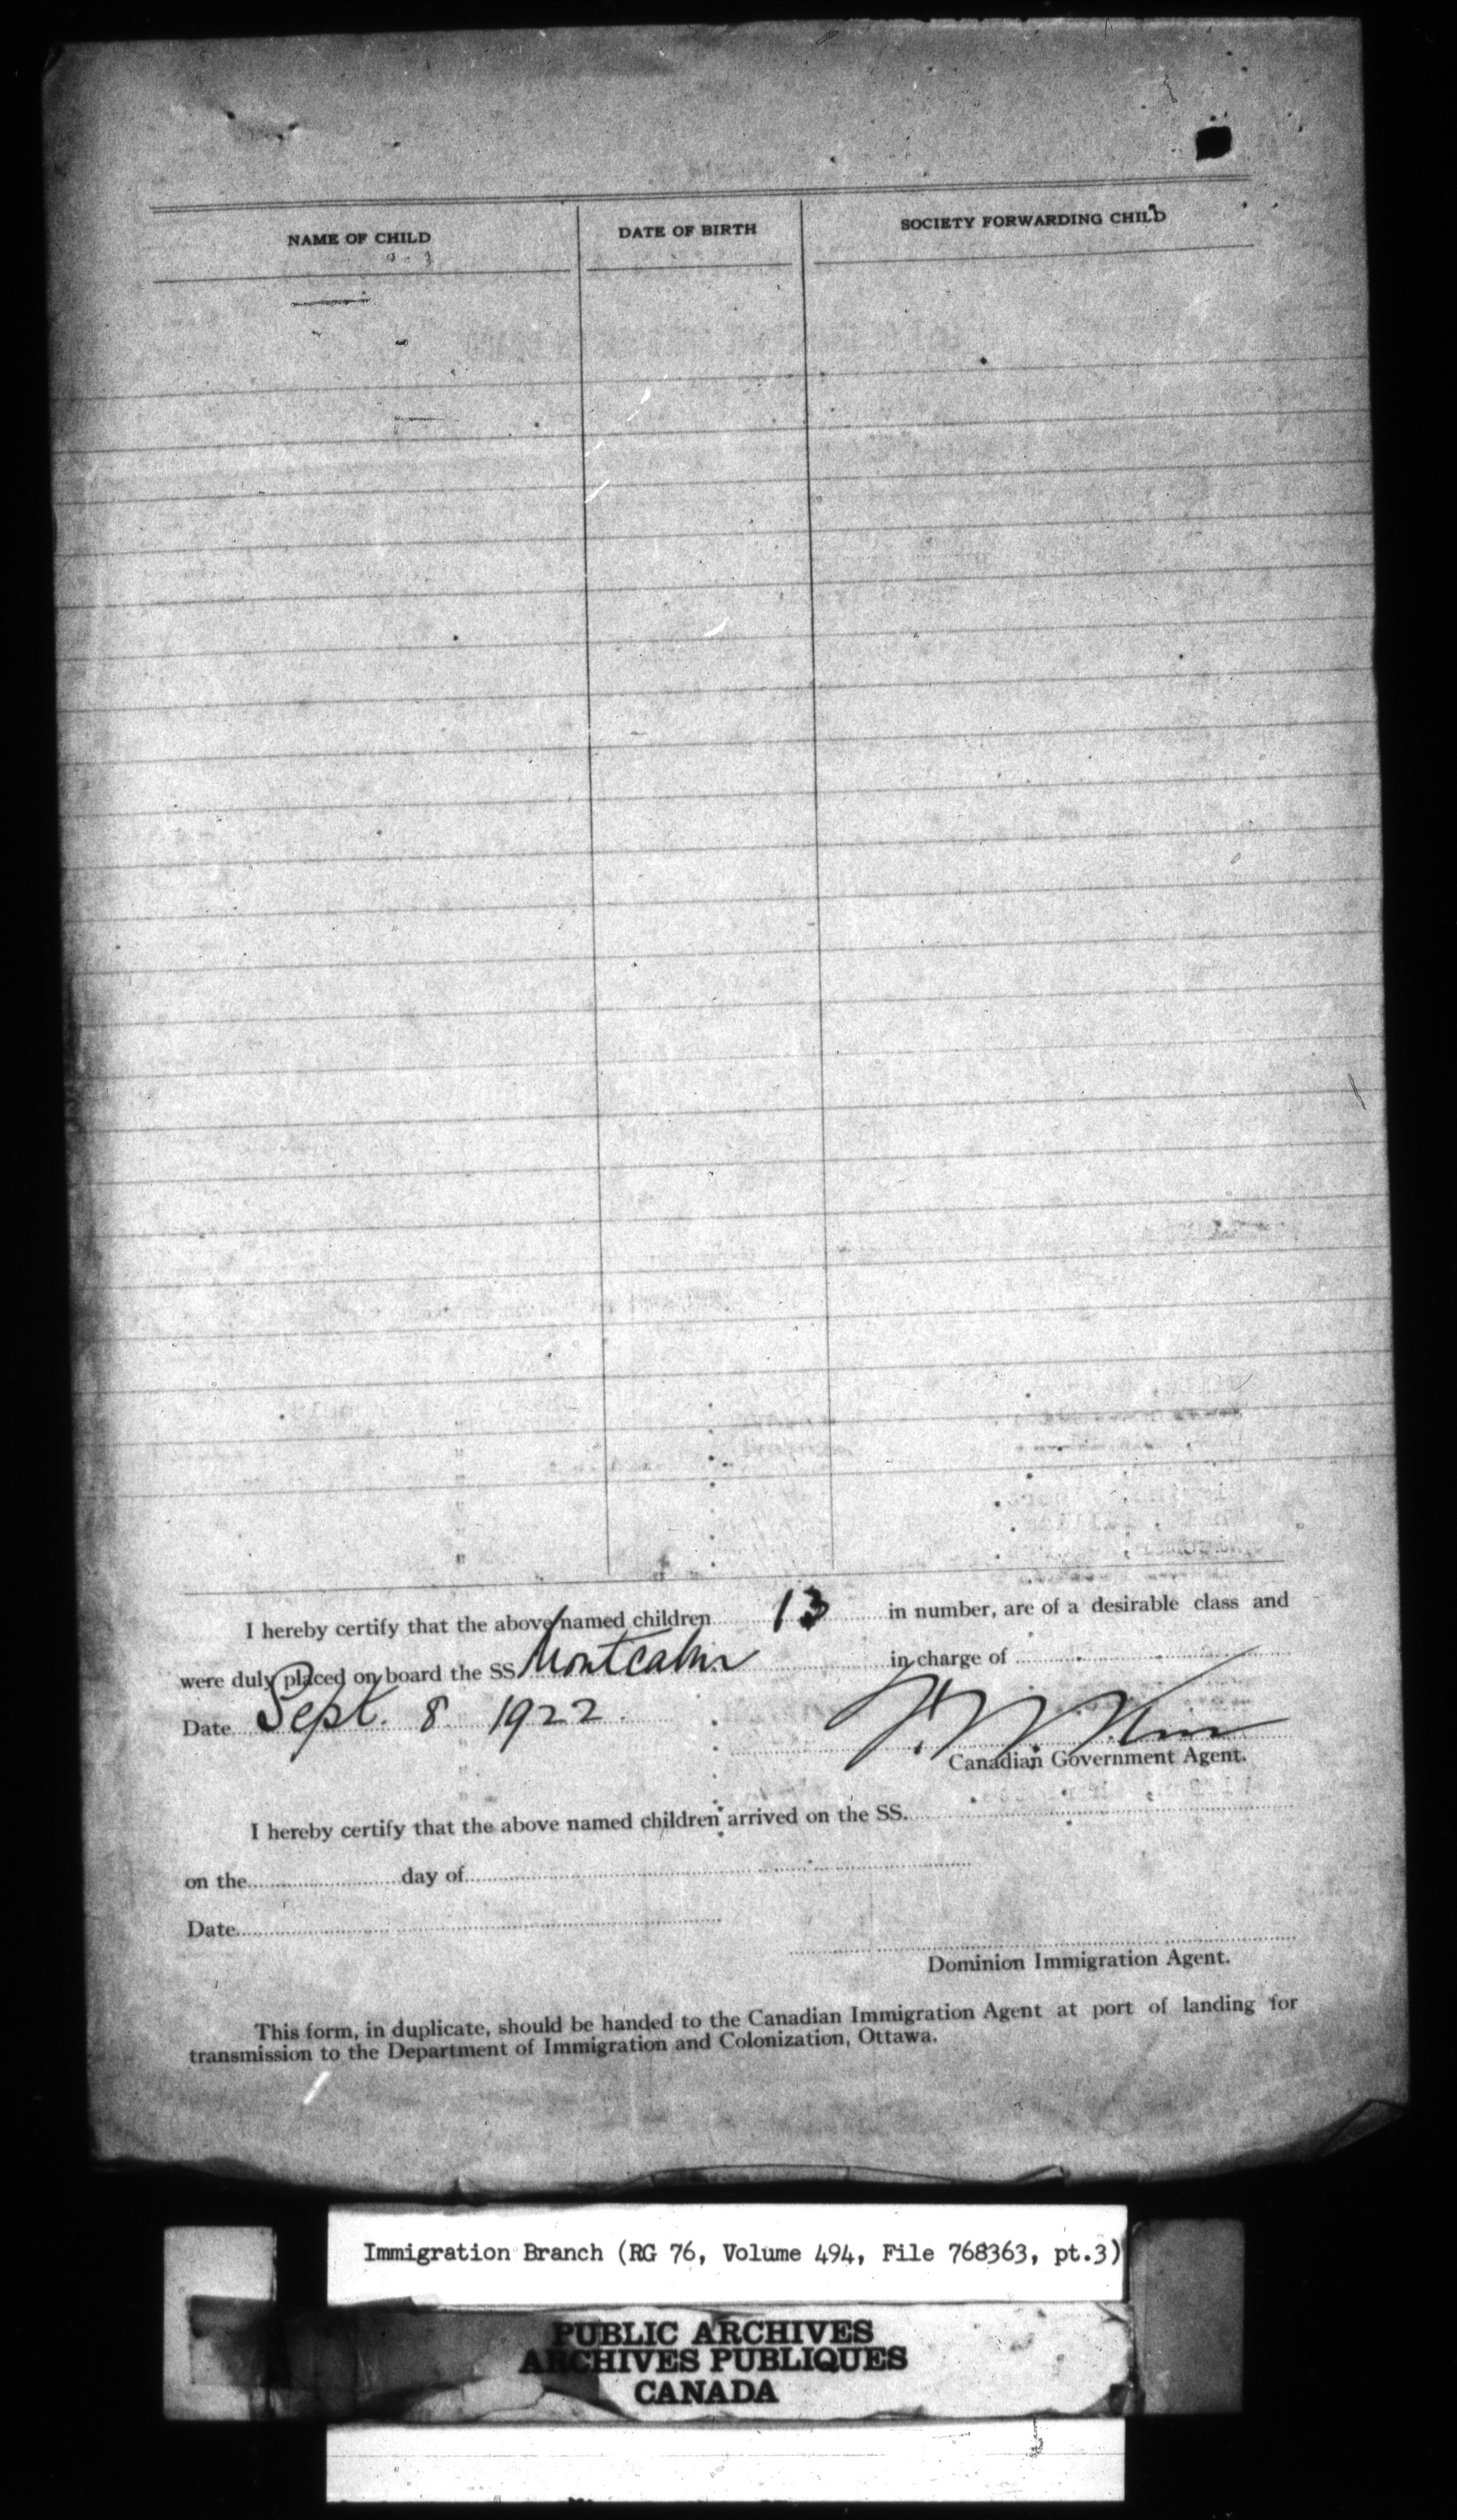 NAME OF CHILD DATE OF BIRTH SOCIETY FORWARDING CHILD
I hereby certify that the above named children 13 in number, are of a desirable class and
were duly placed on board the SS Montcalm in charge of
Date Sept. 8 1922.
Canadian Government Agent.
I hereby certify that the above named children arrived on the SS.
on the day of
Date
Dominion Immigration Agent.
This form, in duplicate, should be handed to the Canadian Immigration Agent at port of landing for
transmission to the Department of Immigration and Colonization, Ottawa.
Immigration Branch (RG 76, Volume 494, File 768363, pt.3)
PUBLIC ARCHIVES
ARCHIVES PUBLIQUES
CANADA